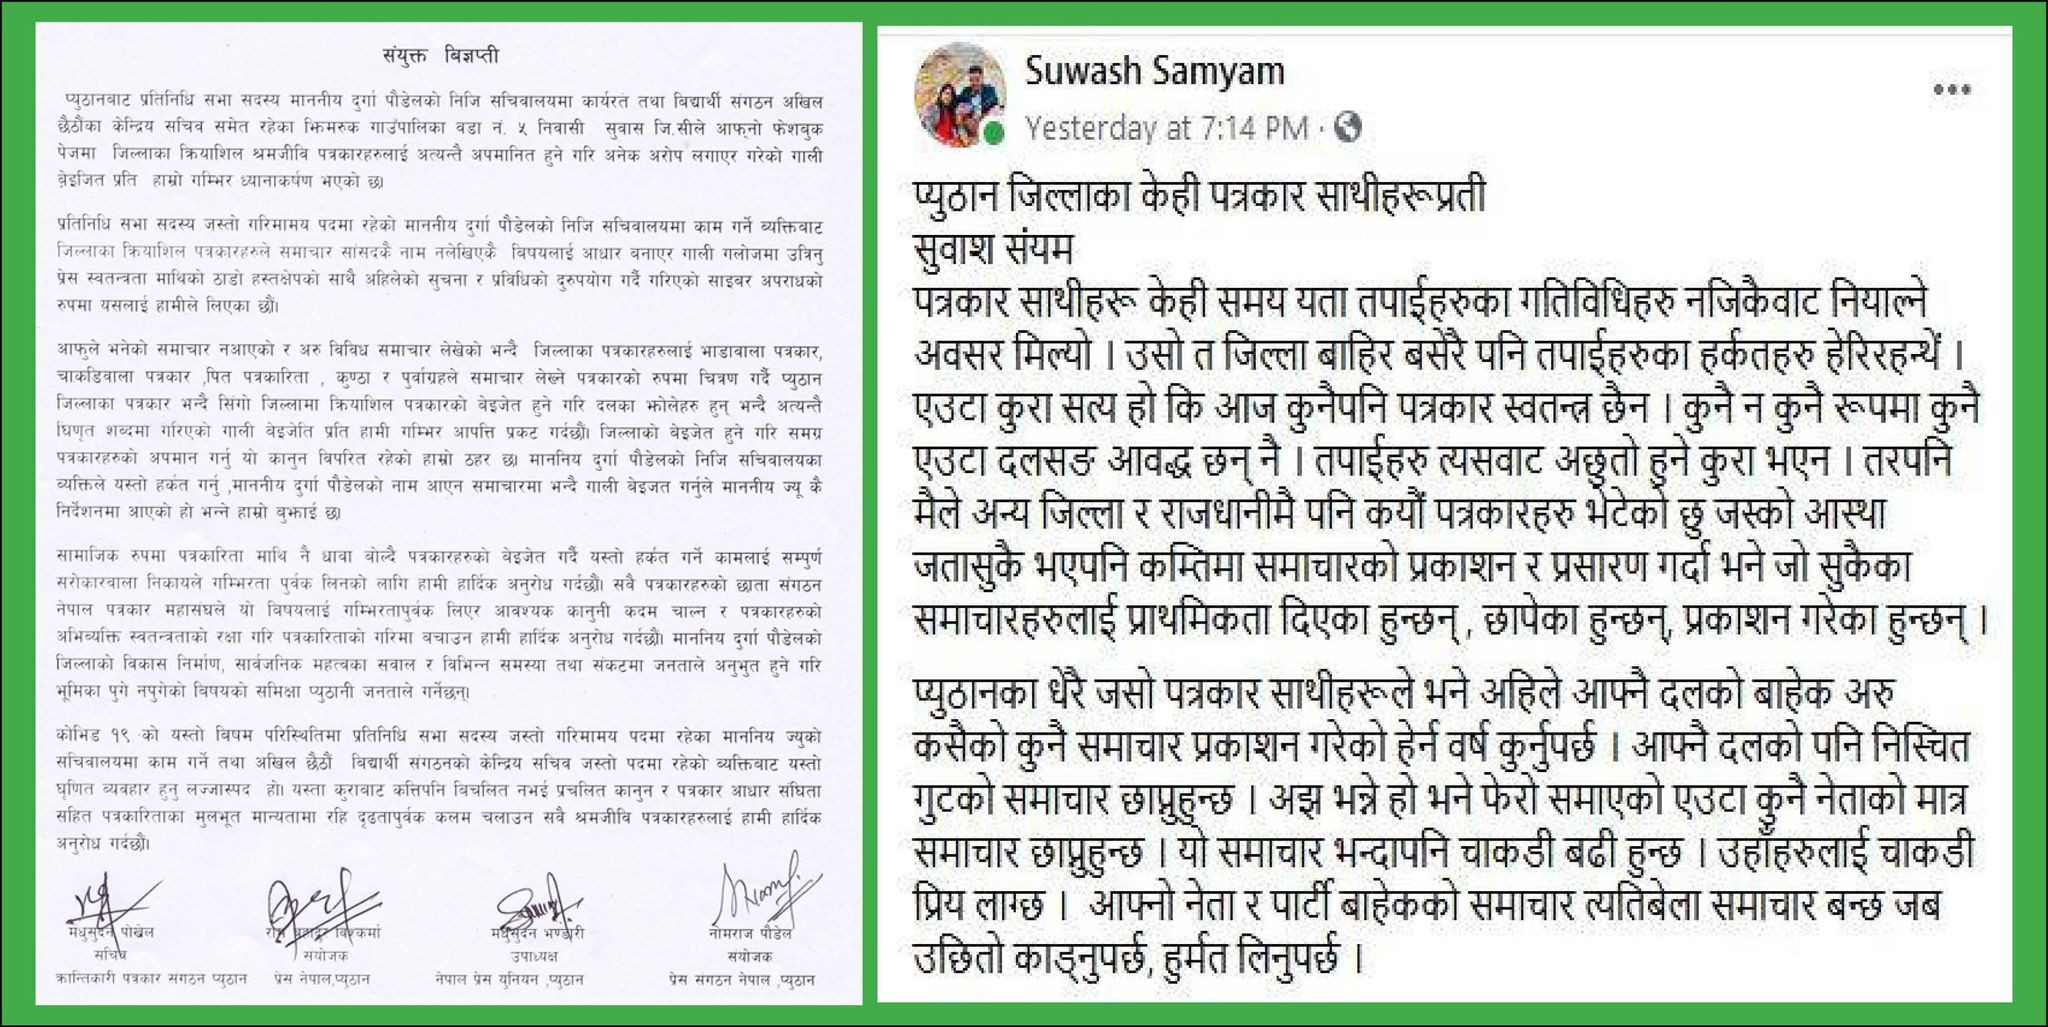 संयुक्त बिज्ञप्ती
प्युठानबाट प्रतिनिधि सभा सदस्य माननीय दुर्गा पौडेलको निजि सचिवालयमा कार्यरत तथा बिद्यार्थी संगठन अखिल
छैठौंका केन्द्रिय सचिव समेत रहेका झिमरुक गाउँपालिका वडा नं. ५ निवासी सुवास जि.सीले आफ्नो फेशबुक
पेजमा जिल्लाका क्रियाशिल श्रमजीवि पत्रकारहरुलाई अत्यन्तै अपमानित हुने गरि अनेक अरोप लगाएर गरेको गाली
बे़इजित प्रति हाम्रो गम्भिर ध्यानाकर्षण भएको छ।
प्रतिनिधि सभा सदस्य जस्तो गरिमामय पदमा रहेको माननीय दुर्गा पौडेलको निजि सचिवालयमा काम गर्ने ब्यक्तिबाट
जिल्लाका क्रियाशिल पत्रकारहरुले समाचार सांसदकै नाम नलेखिएकै बिषयलाई आधार बनाएर गाली गलोजमा उत्रिनु
प्रेस स्वतन्त्रता माथिको ठाडो हस्तक्षेपको साथै अहिलेको सुचना र प्रविधिको दुरुपयोग गर्दै गरिएको साइबर अपराधको
रुपमा यसलाई हामीले लिएका छौं।
आफुले भनेको समाचार नआएको र अरु विविध समाचार लेखेको भन्दै जिल्लाका पत्रकारहरुलाई भाडावाला पत्रकार,
चाकडिवाला पत्रकार ,पित पत्रकारिता , कुण्ठा र पुर्वाग्रहले समाचार लेख्ने पत्रकारको रुपमा चित्रण गर्दै प्युठान
जिल्लाका पत्रकार भन्दै सिंगो जिल्लामा क्रियाशिल पत्रकारको बेइजेत हुने गरि दलका झोलेहरु हुन् भन्दै अत्यन्तै
घिणृत शब्दमा गरिएको गाली बेइजेति प्रति हामी गम्भिर आपत्ति प्रकट गर्दछौं। जिल्लाको बेइजेत हुने गरि समग्र
पत्रकारहरुको अपमान गर्नु यो कानुन विपरित रहेको हाम्रो ठहर छ। माननिय दुर्गा पौडेलको निजि सचिवालयका
ब्यक्तिले यस्तो हर्कत गर्नु ,माननीय दुर्गा पौडेलको नाम आएन समाचारमा भन्दै गाली बेइजत गर्नुले माननीय ज्यू कै
निर्देशनमा आएको हो भन्ने हाम्रो बुझाई छ।
सामाजिक रुपमा पत्रकारिता माथि नै धावा बोल्दै पत्रकारहरुको बेइजेत गर्दै यस्तो हर्कत गर्ने कामलाई सम्पुर्ण
सरोकारवाला निकायले गम्भिरता पुर्वक लिनको लागि हामी हार्दिक अनुरोध गर्दछौं। सवै पत्रकारहरुको छाता संगठन
नेपाल पत्रकार महासंघले यो बिषयलाई गम्भिरतापुर्वक लिएर आवश्यक कानुनी कदम चाल्न र पत्रकारहरुको
अभिब्यक्ति स्वतन्त्रताको रक्षा गरि पत्रकारिताको गरिमा बचाउन हामी हार्दिक अनुरोध गर्दछौं। माननिय दुर्गा पौडेलको
जिल्लाको विकास निर्माण, सार्वजनिक महत्वका सवाल र विभिन्न समस्या तथा संकटमा जनताले अनुभुत हुने गरि
भूमिका पुगे नपुगेको बिषयको समिक्षा प्युठानी जनताले गर्नेछन्।
कोभिड १९ को यस्तो बिषम परिस्थितिमा प्रतिनिधि सभा सदस्य जस्तो गरिमामय पदमा रहेका माननिय ज्युको
सचिवालयमा काम गर्ने तथा अखिल छैठौं विद्यार्थी संगठनको केन्द्रिय सचिव जस्तो पदमा रहेको ब्यक्तिबाट यस्तो
घृणित ब्यवहार हुनु लज्जास्पद हो। यस्ता कुराबाट कत्तिपनि बिचलित नभई प्रचलित कानुन र पत्रकार आधार संघिता
सहित पत्रकारिताका मुलभूत मान्यतामा रहि दृढतापुर्वक कलम चलाउन सवै श्रमजीवि पत्रकारहरुलाई हामी हार्दिक
अनुरोध गर्दछौं।
मधुसुदन पोखेल
सचिव
क्रान्तिकारी पत्रकार संगठन प्युठान
राम बहादुर विश्वकर्मा
संयोजक
प्रेस नेपाल,प्युठान
मधुसुदन भण्डारी
उपाध्यक्ष
नेपाल प्रेस युनियन ,प्युठान
नोमराज पौडेल
संयोजक
प्रेस संगठन नेपाल ,प्युठान
Suwash Samyam
Yesterday at 7:14 PM ·
प्युठान जिल्लाका केही पत्रकार साथीहरूप्रती
सुवाश संयम
पत्रकार साथीहरू केही समय यता तपाईहरुका गतिविधिहरु नजिकैवाट नियाल्ने
अवसर मिल्यो । उसो त जिल्ला बाहिर बसेरै पनि तपाईहरुका हर्कतहरु हेरिरहन्थें ।
एउटा कुरा सत्य हो कि आज कुनैपनि पत्रकार स्वतन्त्र छैन । कुनै न कुनै रूपमा कुनै
एउटा दलसङ आवद्ध छन् नै । तपाईहरु त्यसवाट अछुतो हुने कुरा भएन । तरपनि
मैले अन्य जिल्ला र राजधानीमै पनि कयौं पत्रकारहरु भेटेको छु जस्को आस्था
जतासुकै भएपनि कम्तिमा समाचारको प्रकाशन र प्रसारण गर्दा भने जो सुकैका
समाचारहरुलाई प्राथमिकता दिएका हुन्छन् , छापेका हुन्छन्, प्रकाशन गरेका हुन्छन् ।
प्युठानका धेरै जसो पत्रकार साथीहरूले भने अहिले आफ्नै दलको बाहेक अरु
कसैको कुनै समाचार प्रकाशन गरेको हेर्न वर्ष कुर्नुपर्छ । आफ्नै दलको पनि निस्चित
गुटको समाचार छाप्नुहुन्छ । अझ भन्ने हो भने फेरो समाएको एउटा कुनै नेताको मात्र
समाचार छाप्नुहुन्छ । यो समाचार भन्दापनि चाकडी बढी हुन्छ । उहाँहरुलाई चाकडी
प्रिय लाग्छ । आफ्नो नेता र पार्टी बाहेकको समाचार त्यतिबेला समाचार बन्छ जब
उछितो काड्नुपर्छ, हुर्मत लिनुपर्छ ।